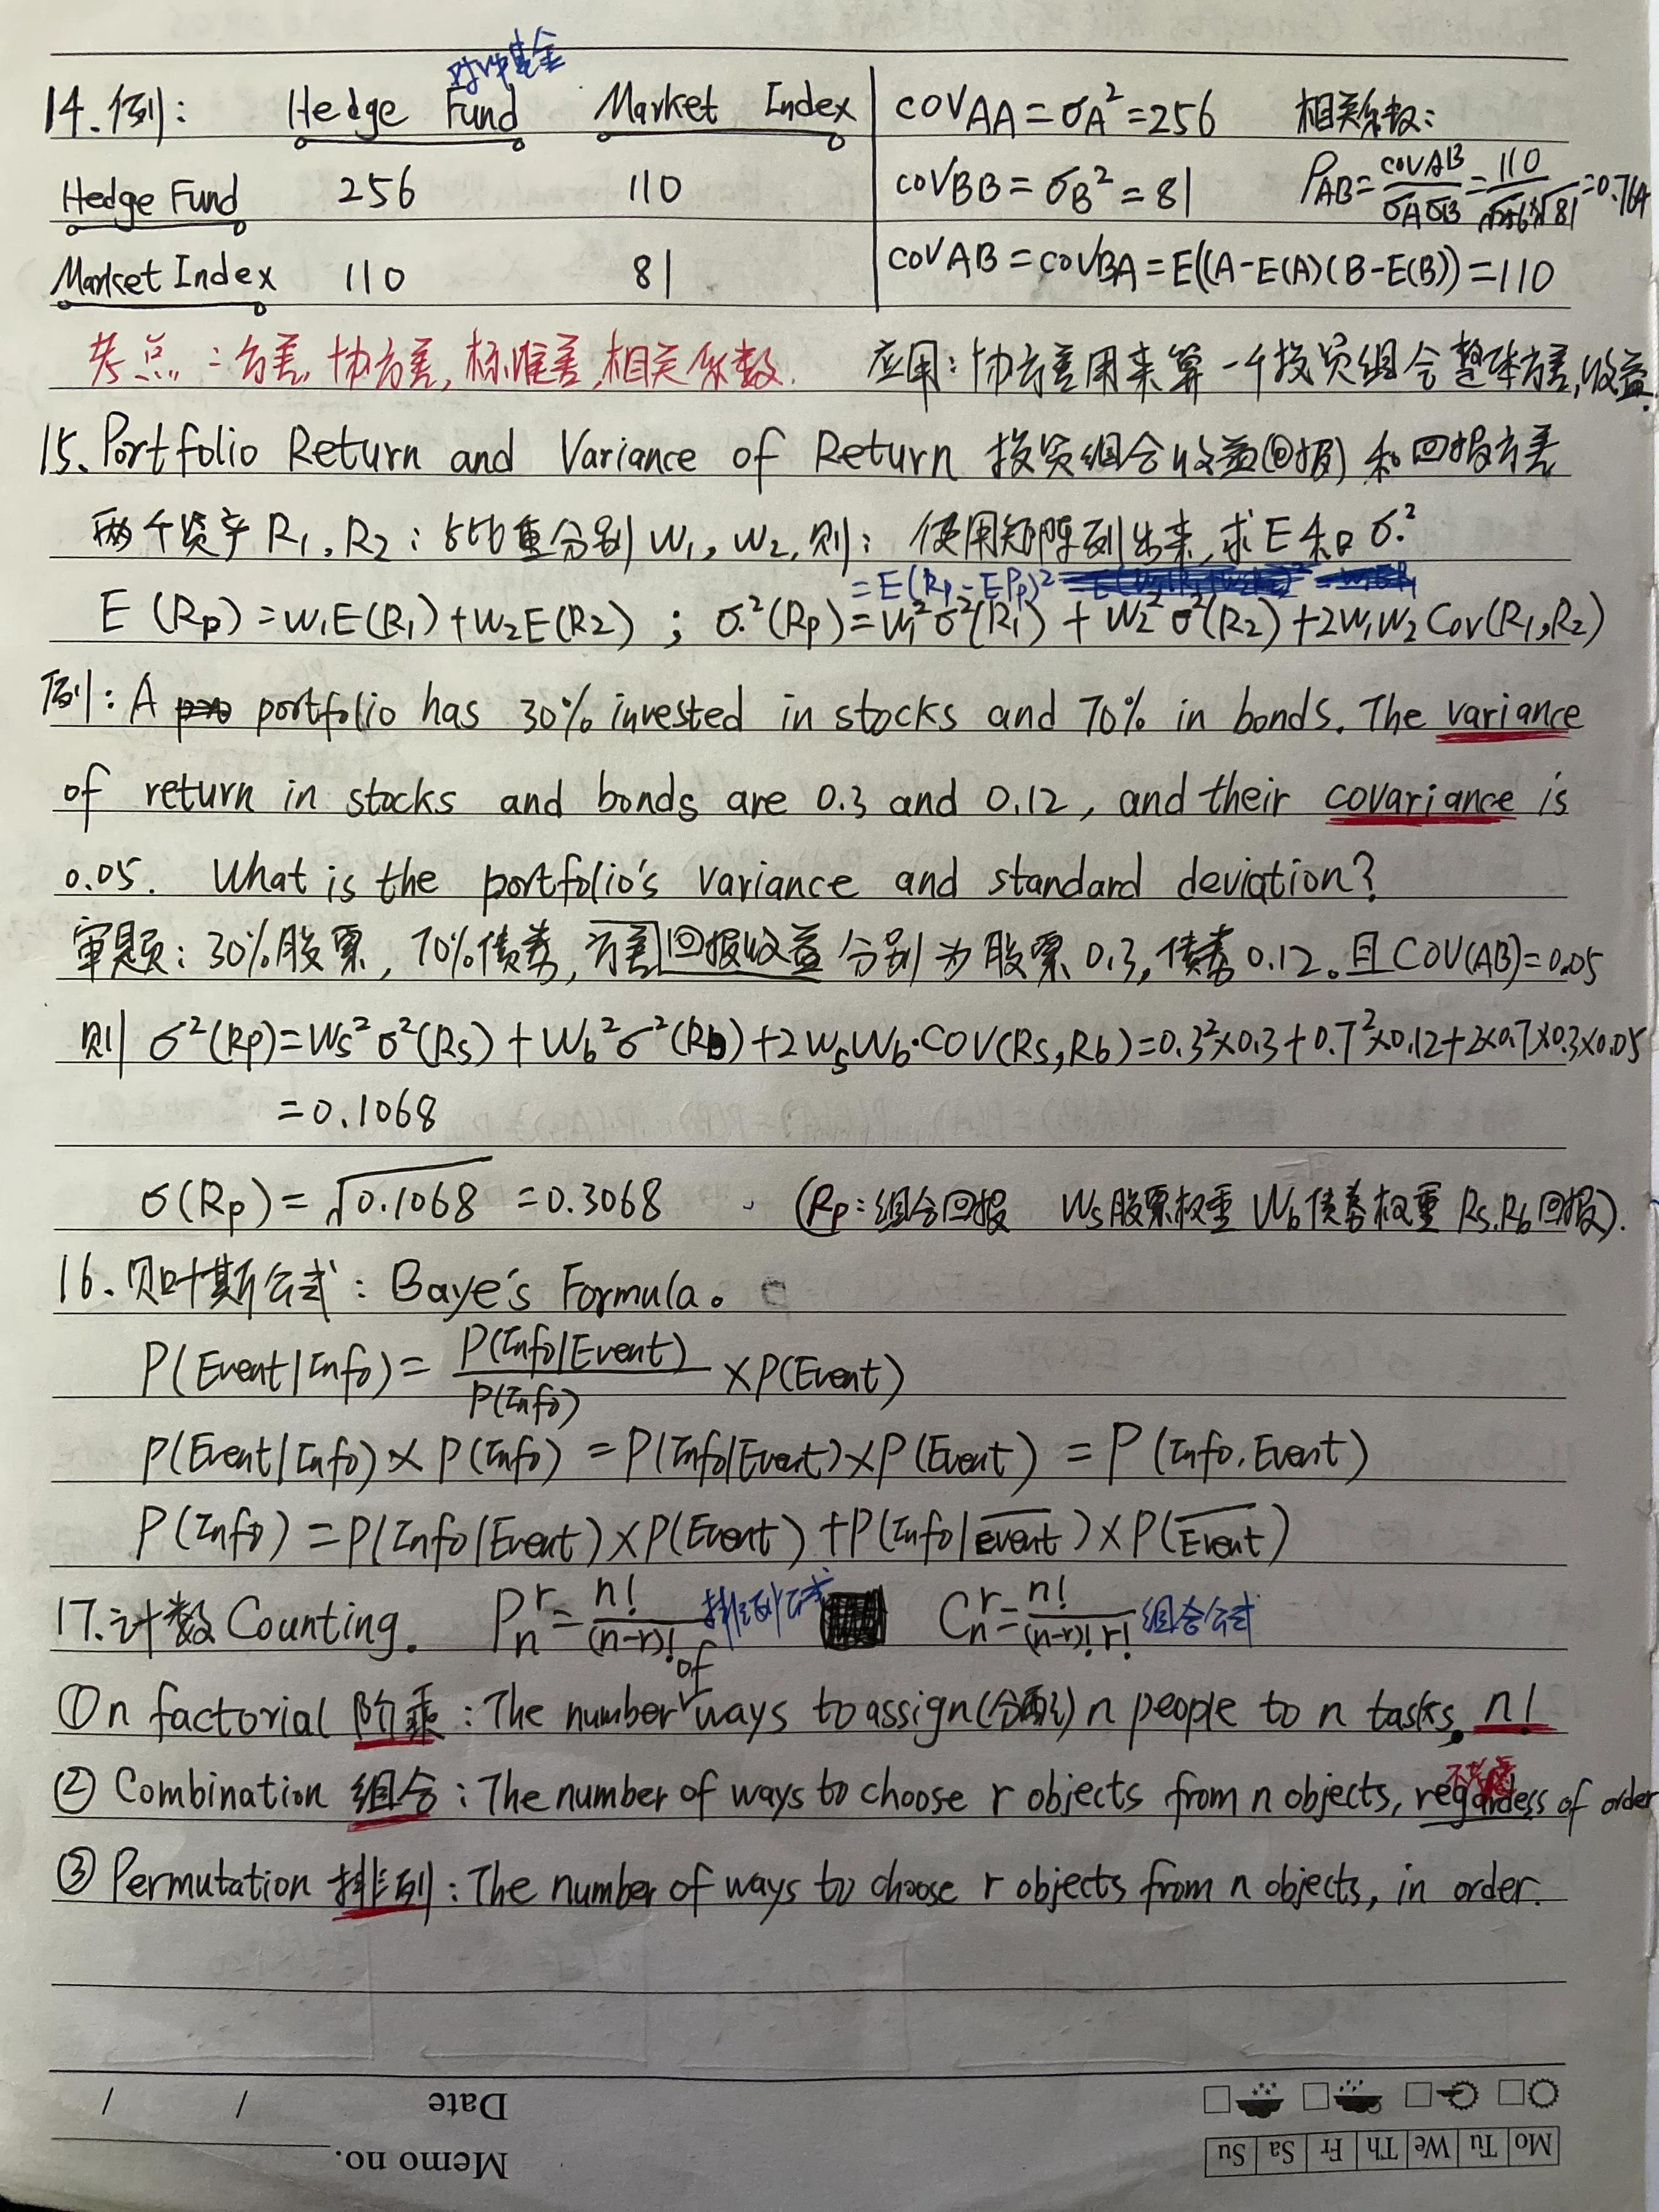 对冲基金
14.例: Hedge Fund Market Index covAA=σA²=256 相关系数:
Hedge Fund 256 110 covBB=σB²=81 ρAB=covAB/σAσB=110/√256×√81=0.764
Market Index 110 81 covAB=covBA=E((A-E(A)(B-E(B))=110
考点:方差,协方差,标准差,相关系数. 应用:协方差用来算一个投资组合整体方差,收益.
15.Portfolio Return and Variance of Return 投资组合收益(回报)和回报方差
两个资产R1,R2:比重分别W1,W2,则: 使用矩阵列出来,求E和σ²
=E(Rp-EPp)²
E(Rp)=W1E(R1)+W2E(R2) ; σ²(Rp)=W1²σ²(R1)+W2²σ²(R2)+2W1W2Cov(R1,R2)
例:A portfolio has 30% invested in stocks and 70% in bonds. The variance
of return in stocks and bonds are 0.3 and 0.12, and their covariance is
0.05. What is the portfolio's variance and standard deviation?
审题:30%股票,70%债券,方差回报收益分别为股票0.3,债券0.12。且COV(AB)=0.05
则σ²(Rp)=Ws²σ²(Rs)+Wb²σ²(Rb)+2WsWb·COV(Rs,Rb)=0.3²×0.3+0.7²×0.12+2×0.7×0.3×0.05
=0.1068
σ(Rp)=√0.1068=0.3068 (Rp:组合回报 Ws股票权重 Wb债券权重 Rs.Rb回报).
16.贝叶斯公式:Baye's Formula。
P(Event|Info)=P(Info|Event)/P(Info)×P(Event)
P(Event|Info)×P(Info)=P(Info|Event)×P(Event)=P(Info.Event)
P(Info)=P(Info|Event)×P(Event)+P(Info|e̅v̅e̅n̅t̅)×P(E̅v̅e̅n̅t̅)
17.计数Counting. Pₙʳ=n!/(n-r)! 排列公式 Cₙʳ=n!/(n-r)!r! 组合公式
①n factorial 阶乘:The number of ways to assign(分配)n people to n tasks, n!
②Combination 组合:The number of ways to choose r objects from n objects, regardless of order
不考虑
③Permutation 排列:The number of ways to choose r objects from n objects, in order.
Date / /
Memo no.
Mo Tu We Th Fr Sa Su